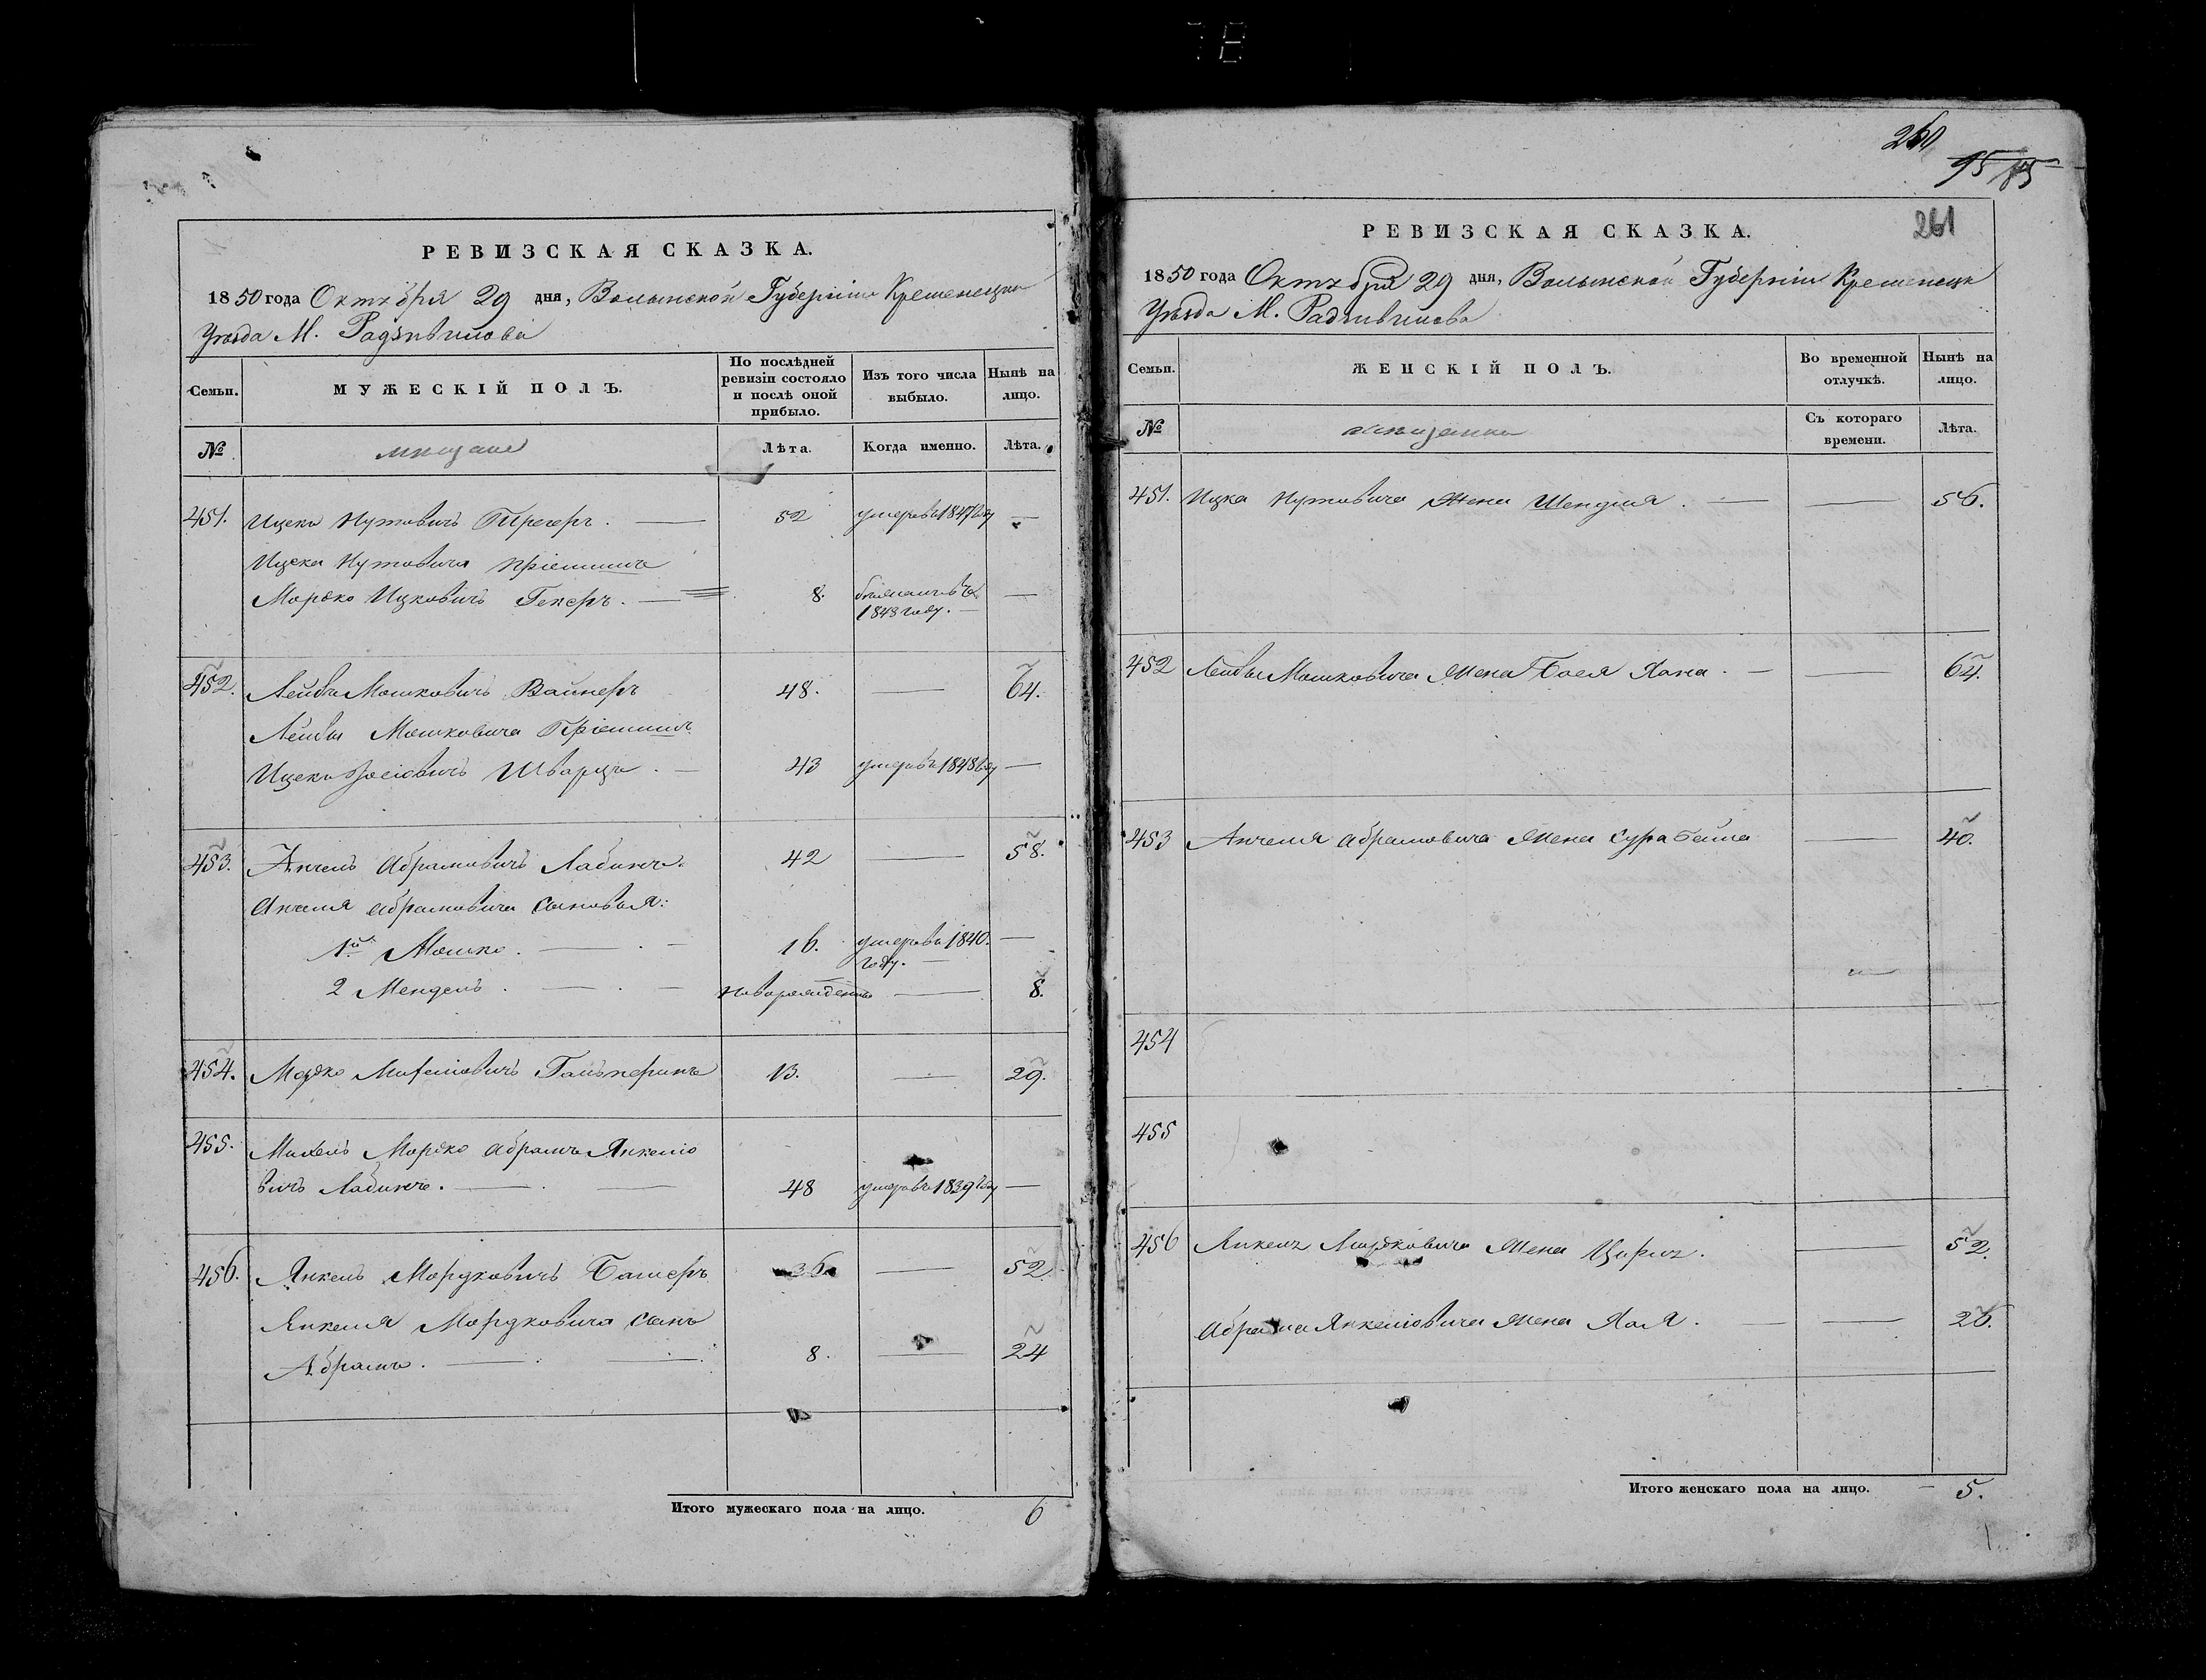 РЕВИЗСКАЯ СКАЗКА.
1850 года Октября 29 дня, Волынской Губерніи Кременецка
Уѣзда М. Радзивилова
Семьи.
МУЖЕСКІЙ ПОЛЪ.
По послѣдней ревизіи состояло и послѣ оной прибыло.
Изъ того числа выбыло.
Нынѣ на лицо.
№
мещане
Лѣта.
Когда именно.
Лѣта.
451. Ицко Нутовичъ 52 умеръ въ 1847 году —
Ицка Нутовича Пріемышъ
Мордко Ицковичъ Гекеръ. 8. 1843 году. —
452. Лейба Мошковичъ Вайнеръ 48. — 64.
Лейбы Мошковича Пріемышъ
Ицко Іосіовичъ Шварцъ. 43 умеръ въ 1848 году —
453. Анчель Абрамовичъ Лабинъ. 42 — 58.
Анчеля Абрамовича Сыновья:
1й Мошко. 16. умеръ въ 1840. году. —
2 Мендель. Новорожденный — 8.
454. Мордко Гальперинъ 13. — 29.
455. Михель Мордко Абрамъ Янкеліо
вичъ Лабинъ. 48 умеръ въ 1839 году —
456. Янкель Мордковичъ 36. — 52
Янкеля Мордковича Сынъ
Абрамъ. 8. — 24
Итого мужескаго пола на лицо. 6
260
95
85
261
РЕВИЗСКАЯ СКАЗКА.
1850 года Октября 29 дня, Волынской Губерніи Кременецка
Уѣзда М. Радзивилова
Семьи.
ЖЕНСКІЙ ПОЛЪ.
Во временной отлучкѣ.
Нынѣ на лицо.
№
мещанки
Съ котораго времени.
Лѣта.
451. Ицка Нутовича Жена Шендля. — 56.
452 Лейбы Мошковича Жена Хана. — 64.
453 Анчеля Абрамовича Жена Сура Бейла — 40.
454
455
456 Янкеля Мордковича Жена — 52.
Абрама Янкеліовича Жена Хая. — 26.
Итого женскаго пола на лицо. — 5.